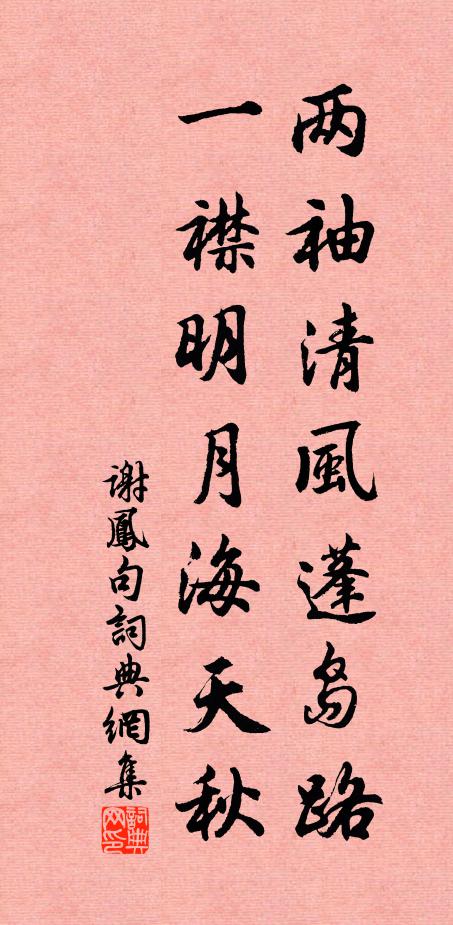 两袖清風蓬岛路
一襟明月海天秋
谢鳳句詞典網集
詞典网印